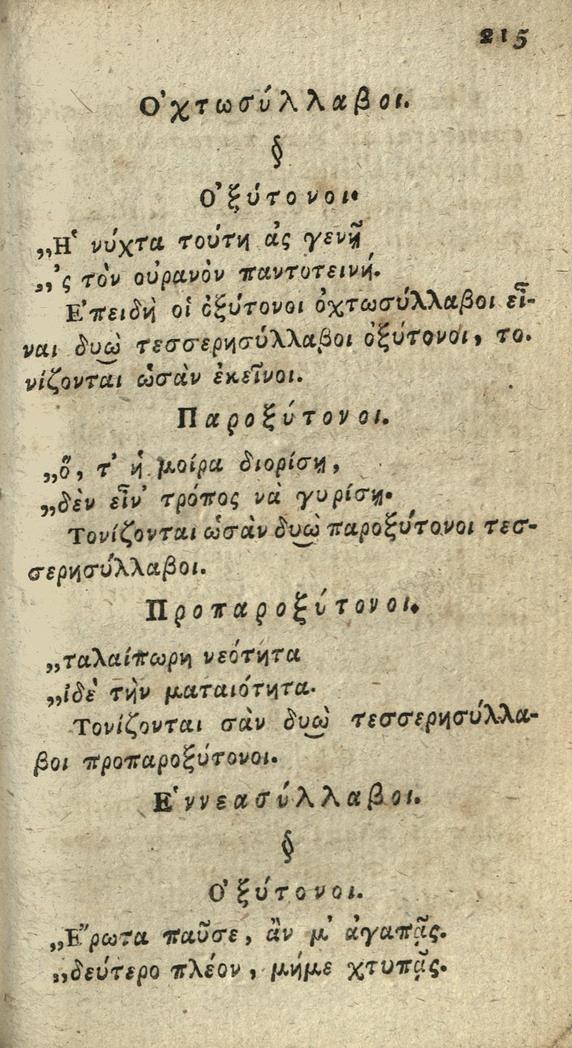 215
Ὀχτωσύλλαβοι.
§
Ὀξύτονοι.
„Ἡ νύχτα τούτη ἂς γενῇ
„'ς τὸν οὐρανὸν παντοτεινή.
Ἐπειδὴ οἱ ὀξύτονοι ὀχτωσύλλαβοι εἶ-
ναι δυὼ̮ τεσσερησύλλαβοι ὀξύτονοι, το.
νίζονται ὡσὰν ἐκεῖνοι.
Παροξύτονοι.
„ὅ, τ' ἡ μοίρα διορίσῃ,
„δὲν εἶν' τρόπος νὰ γυρίσῃ.
Τονίζονται ὡσὰν δυὼ̮ παροξύτονοι τεσ-
σερησύλλαβοι.
Προπαροξύτονοι.
„ταλαίπωρη νεότητα
„ἰδὲ τὴν ματαιότητα.
Τονίζονται σὰν δυὼ̮ τεσσερησύλλα-
βοι προπαροξύτονοι.
Ἐννεασύλλαβοι.
§
Ὀξύτονοι.
„Ἔρωτα παῦσε, ἂν μ' ἀγαπᾷς.
„δεύτερο πλέον, μήμε χτυπᾷς.